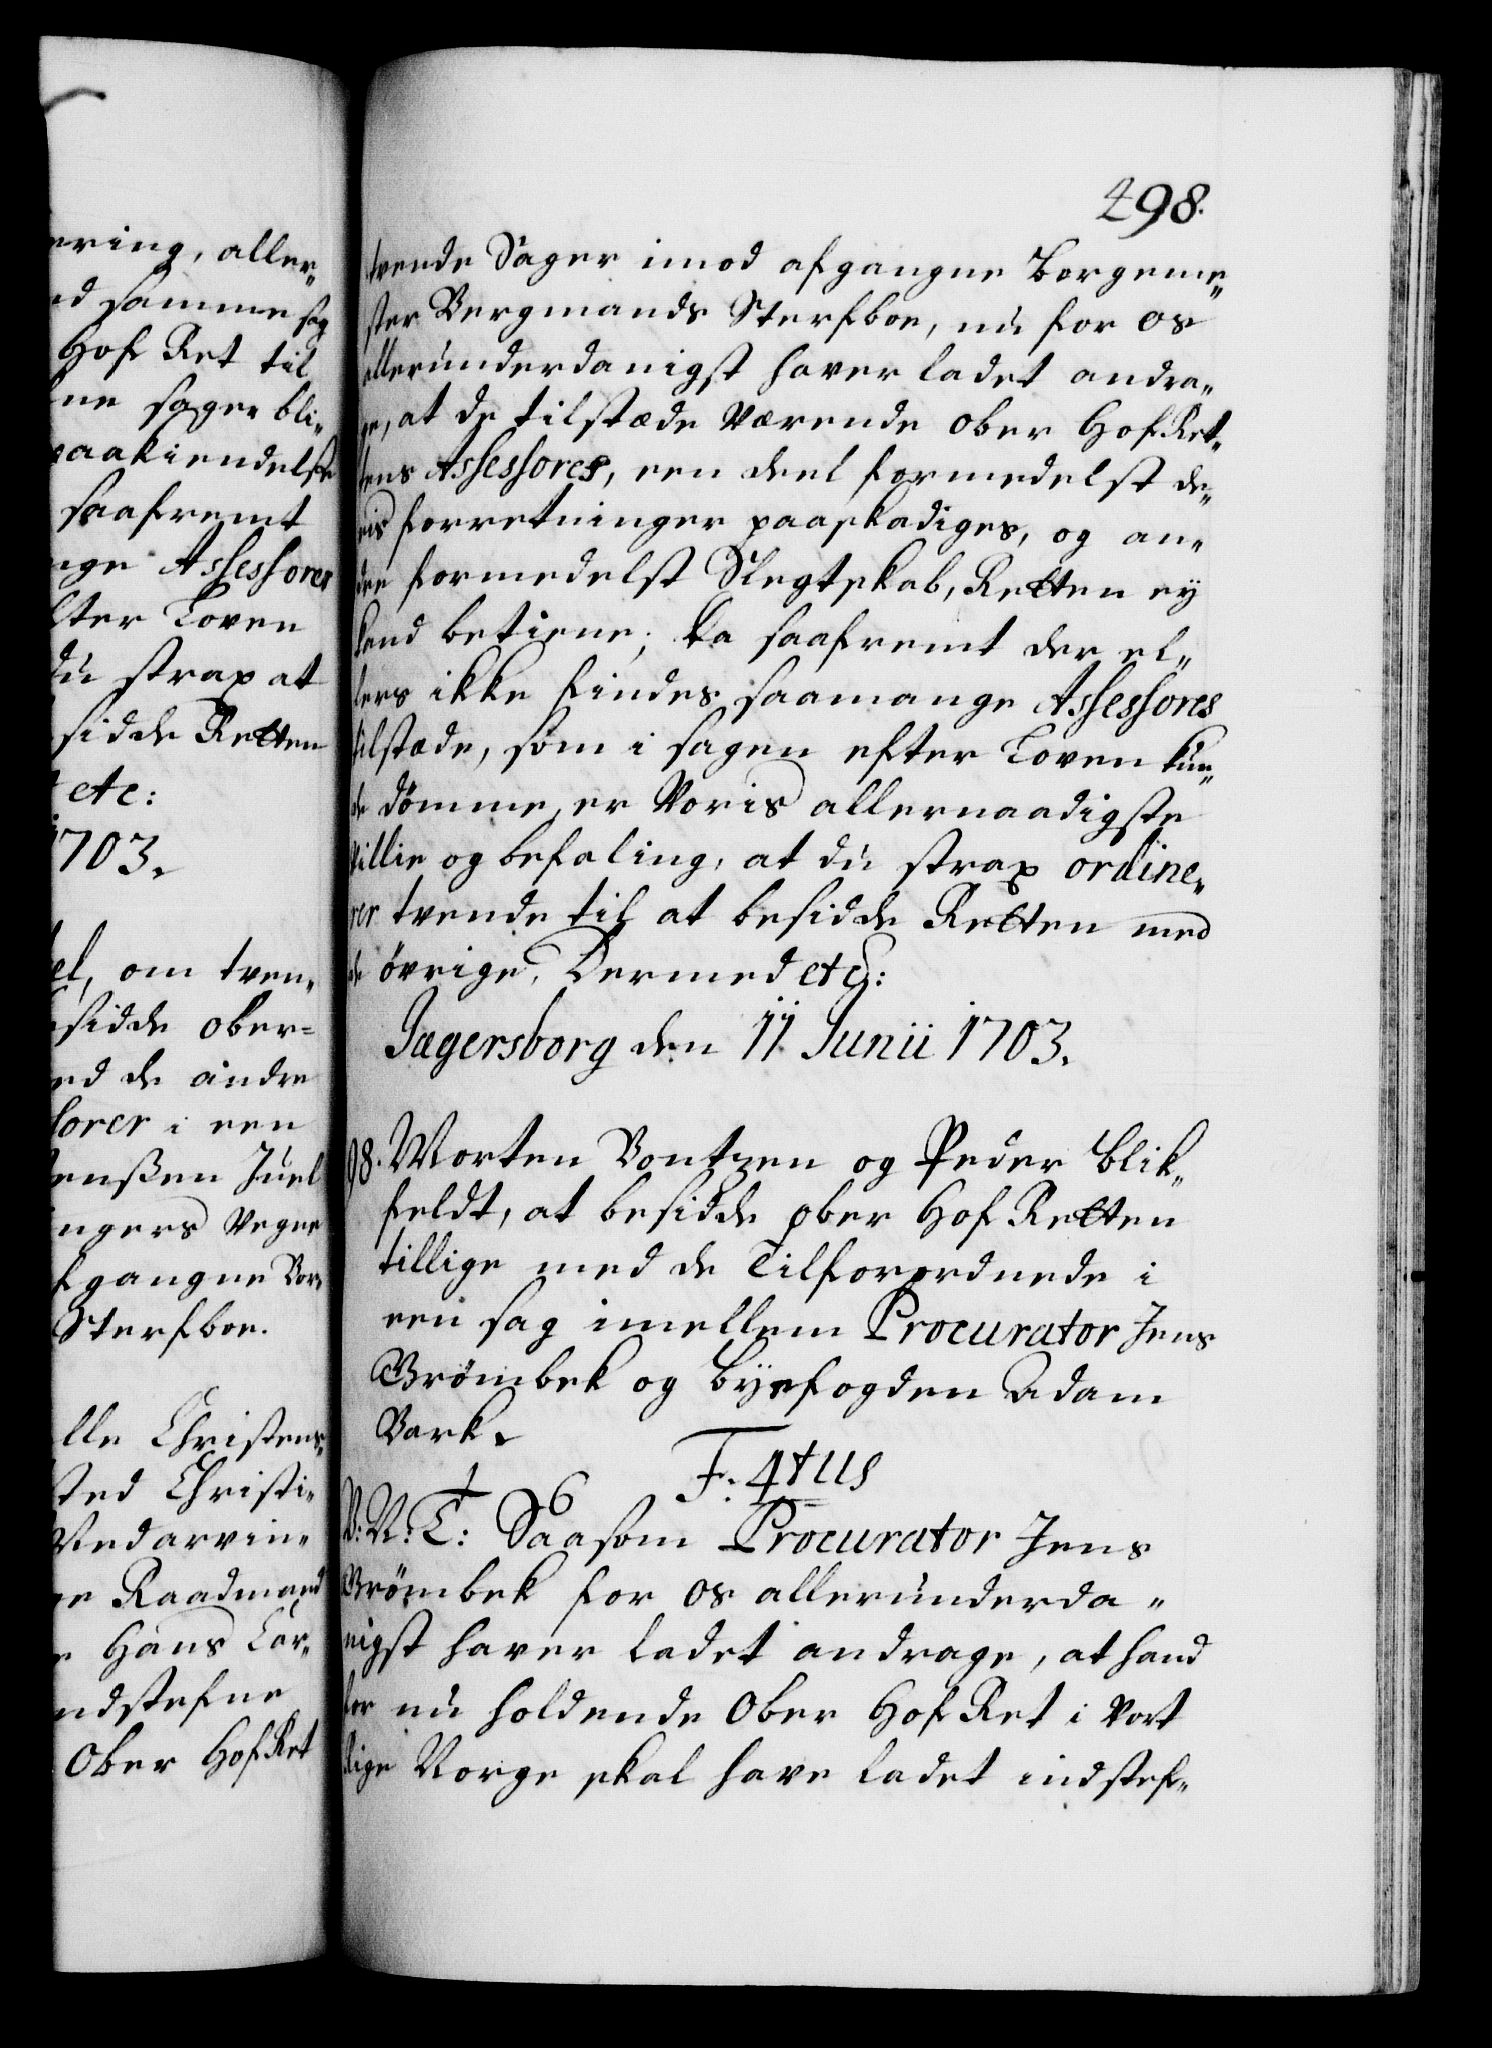 ering, aller„
ed samme sag
Hof Ret til
ne sager bli„
paakiendelse
saafremt
nge Assessorer
fter Loven
du strax at
sidde Retten
etc:
1703.
el, om tven„
sidde ober=
ed de andre
sorer i een
enßen Juel
ingers Vegne
fgangne Bor„
Sterfboe.
lle Christens„
sted Christi„
Medarvin„
ge Raadmand
e Hans Lar„
ndstefne
Ober Hof Ret
498.
tvende Sager imod afgangne Borgeme„
ster Bergmands Sterfboe, nu for os
allerunderdanigst haver ladet andra„
ge, at de tilstæde Værende Ober Hof Ret„
tens Assessorer, een deel formedelst de„
ris forretninger paaskadiges, og an„
dre formedelst Slegtskab, Retten ey
kand betiene; Da saafremt der el„
lers ikke findes saamange Assessores
tilstæde, som i sagen efter Loven kun„
de dømme, er Voris allernaadigste
Villie og befaling, at du strax ordine„
rer tvende til at besidde Retten med
de øvrige, Dermed etc:
Jægersborg den 11 Junii 1703.
98. Morten Bontzen og Peder Blik„
feldt, at besidde ober Hof Retten
tillige med de Tilforordnede i
een sag imellem Procurator Jens
Brømbek og byefogden Adam
Bark.
F. 4tus
V: N: T: Saasom Procurator Jens
Brømbek for os allerunderda„
nigst haver ladet andrage, at hand
for nu holdende Ober Hof Ret i Vort
Rige Norge skal have ladet indstef„